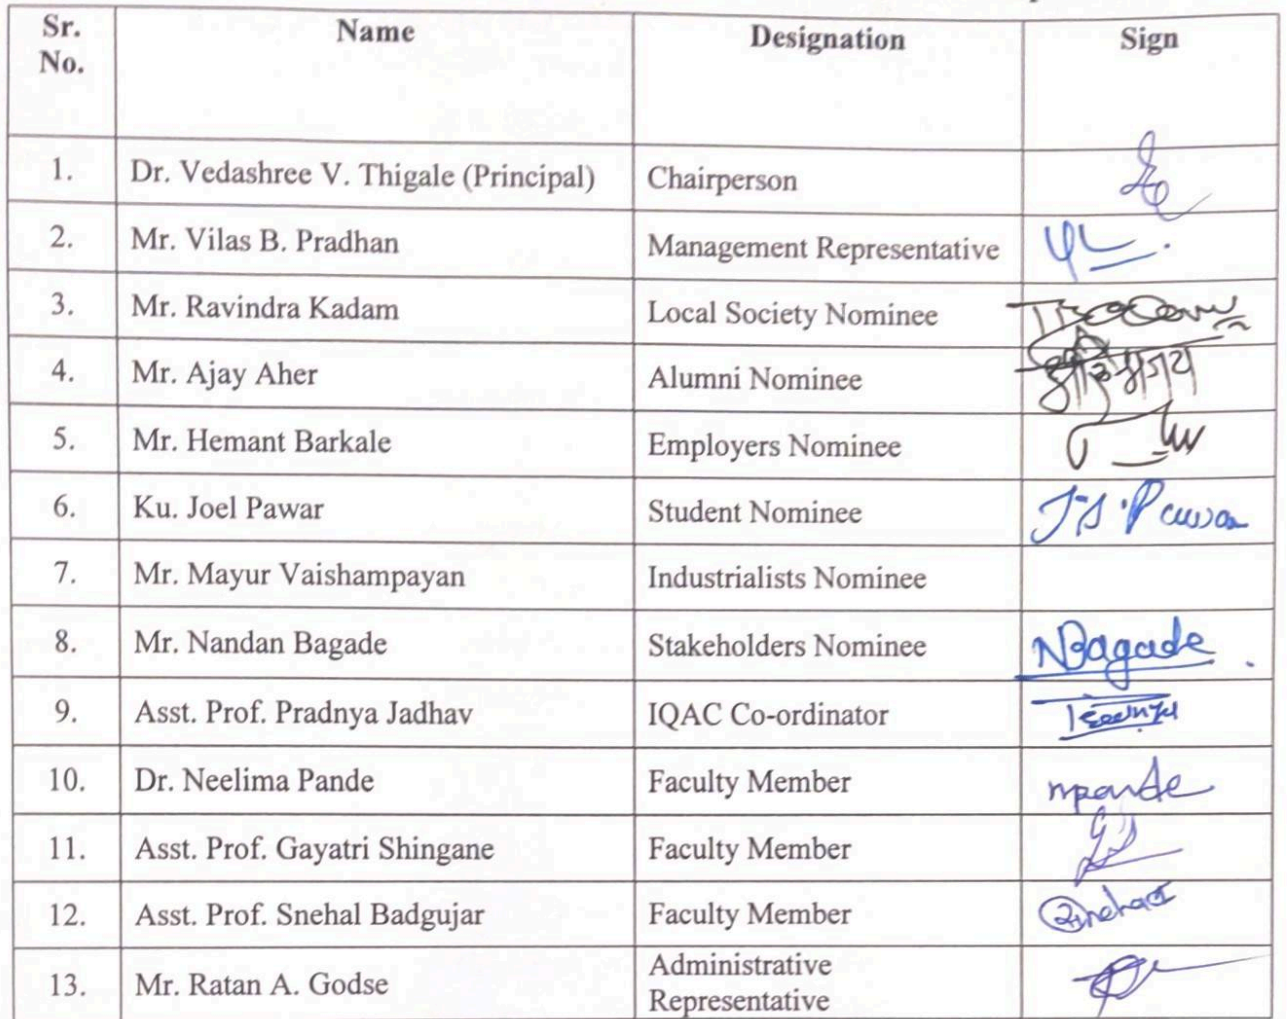 Sr. No. Name Designation Sign
1. Dr. Vedashree V. Thigale (Principal) Chairperson
2. Mr. Vilas B. Pradhan Management Representative
3. Mr. Ravindra Kadam Local Society Nominee
4. Mr. Ajay Aher Alumni Nominee
5. Mr. Hemant Barkale Employers Nominee
6. Ku. Joel Pawar Student Nominee J.S. Pawar
7. Mr. Mayur Vaishampayan Industrialists Nominee
8. Mr. Nandan Bagade Stakeholders Nominee NBagade
9. Asst. Prof. Pradnya Jadhav IQAC Co-ordinator
10. Dr. Neelima Pande Faculty Member npande
11. Asst. Prof. Gayatri Shingane Faculty Member
12. Asst. Prof. Snehal Badgujar Faculty Member Snehal
13. Mr. Ratan A. Godse Administrative
Representative